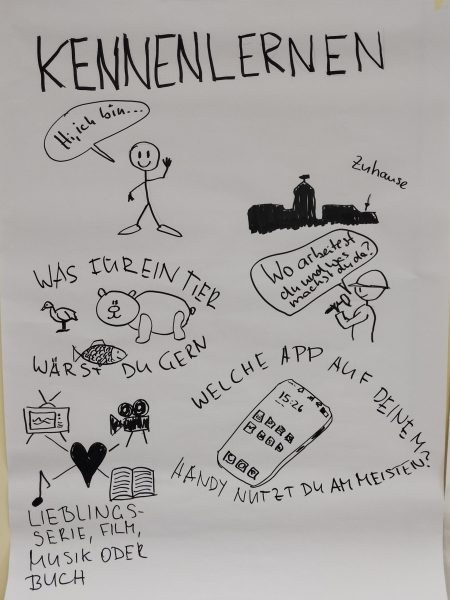 KENNENLERNEN
Hi, ich bin...
Zuhause
Wo arbeitest
du und was
machst du da?
WAS FÜR EIN TIER
WÄRST DU GERN
WELCHE APP AUF DEINEM
15:24
HANDY NUTZT DU AM MEISTEN?
LIEBLINGS-
SERIE, FILM,
MUSIK ODER
BUCH